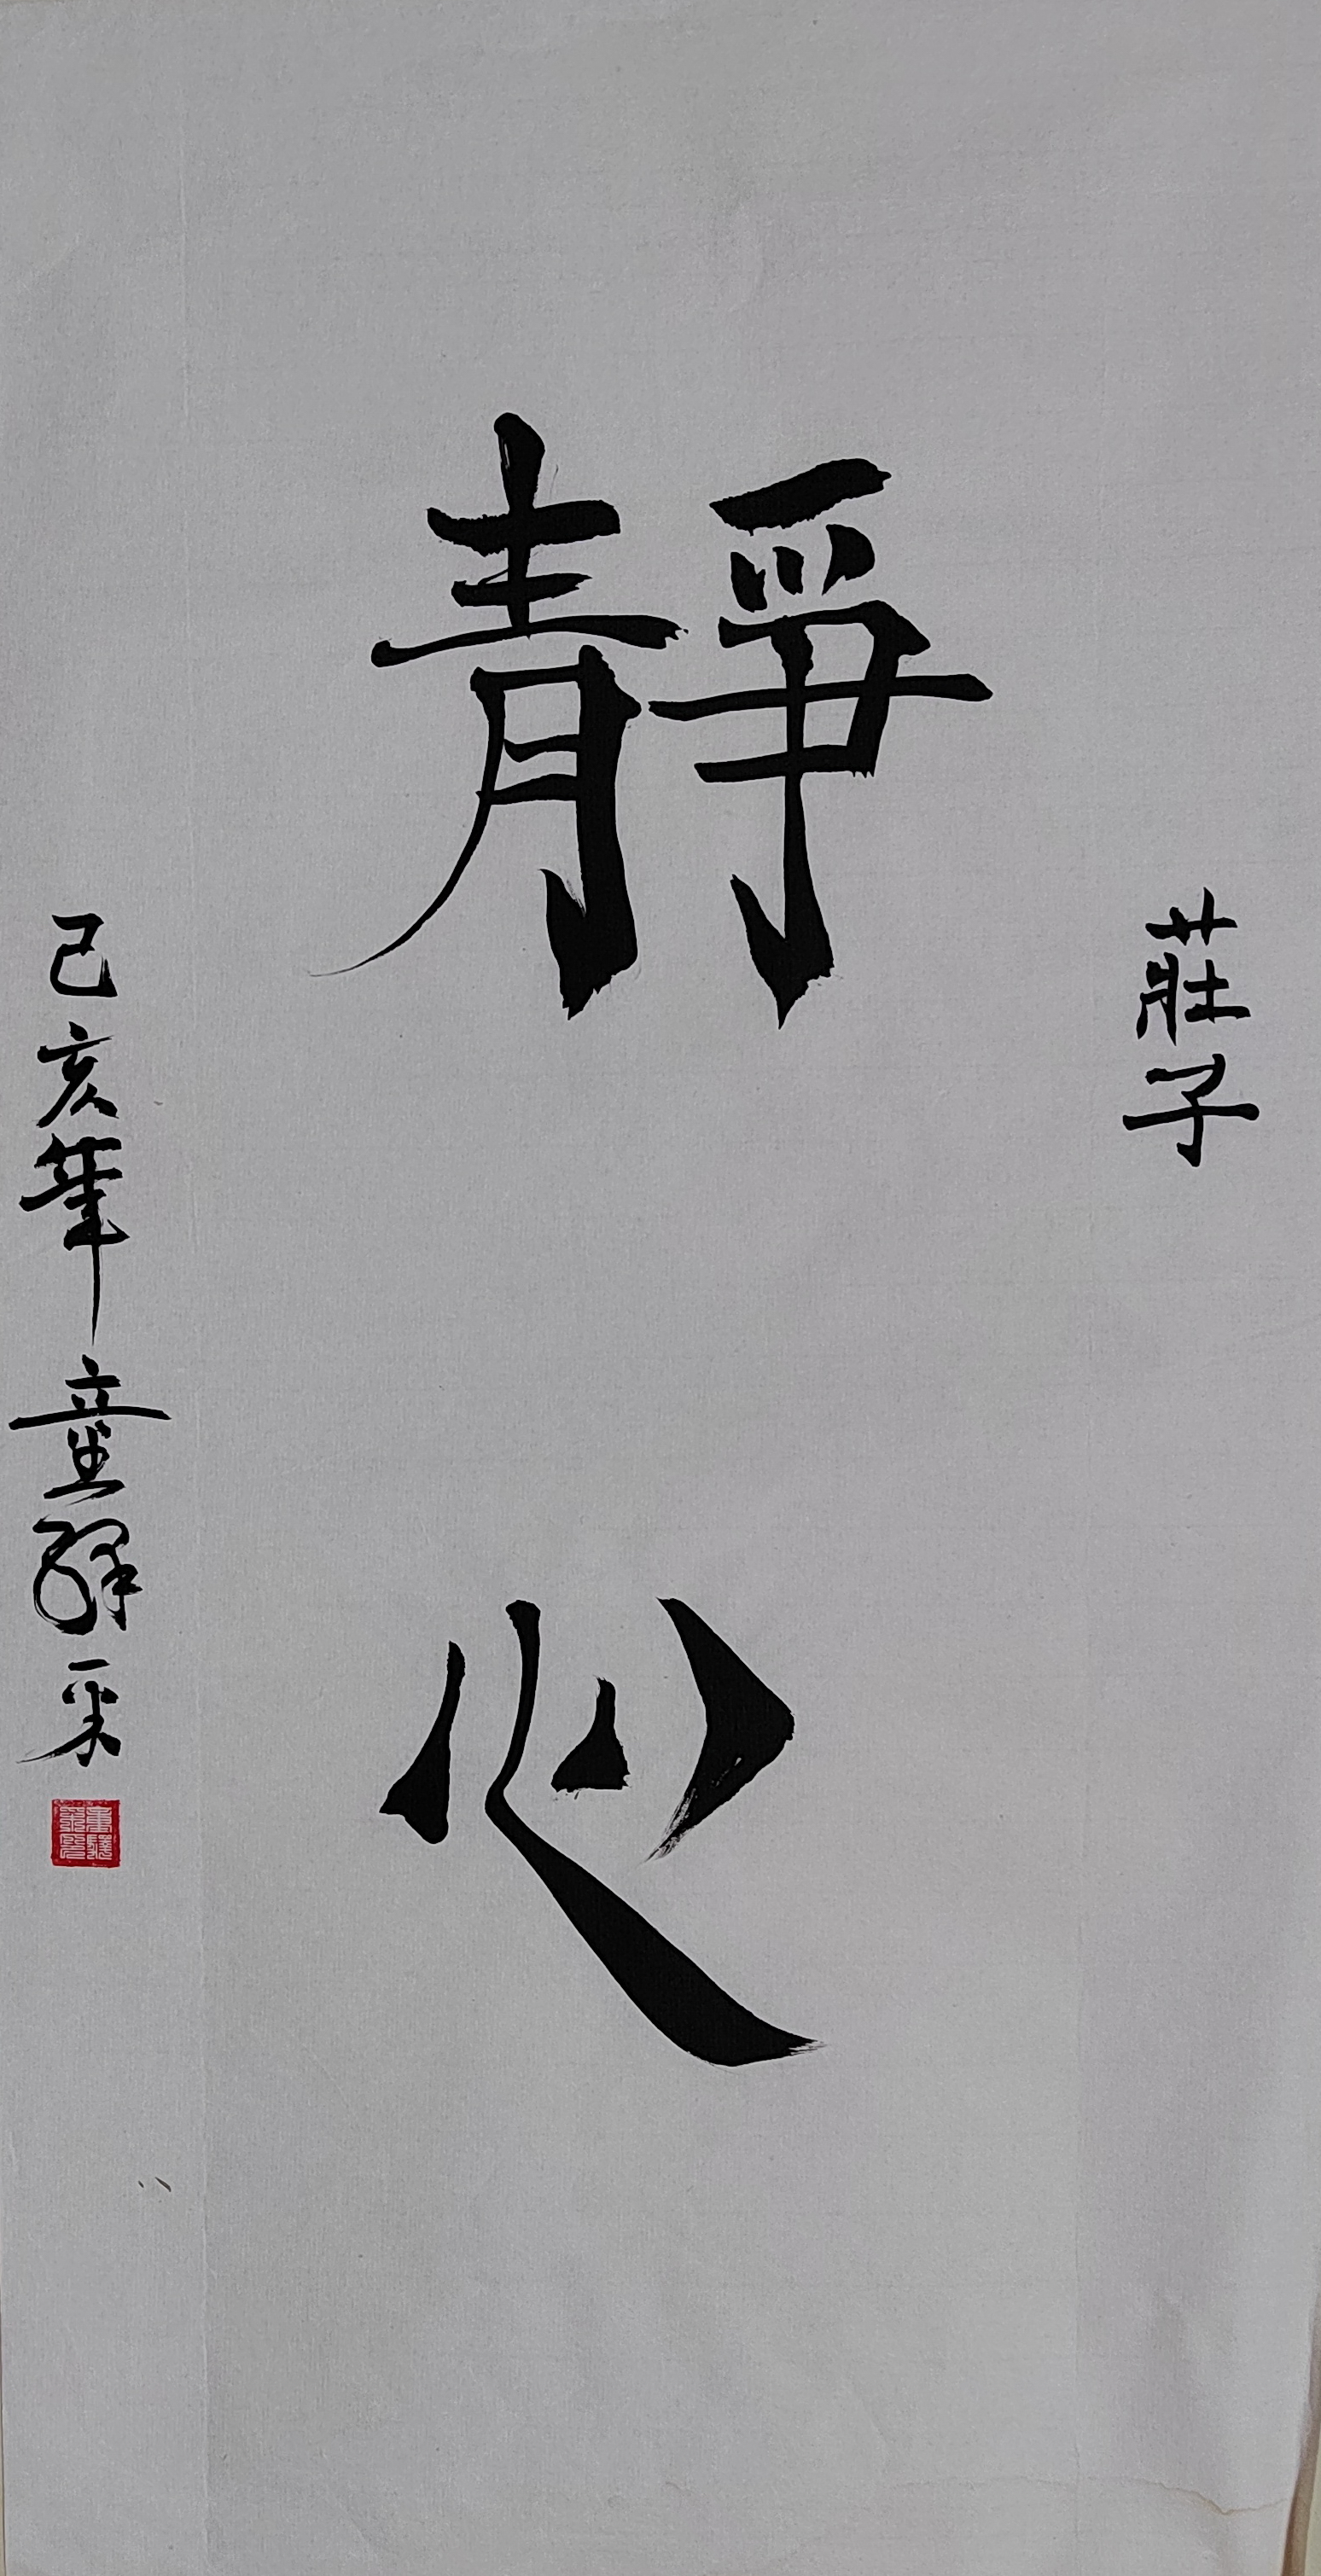 莊子
靜心
己亥年童驛采